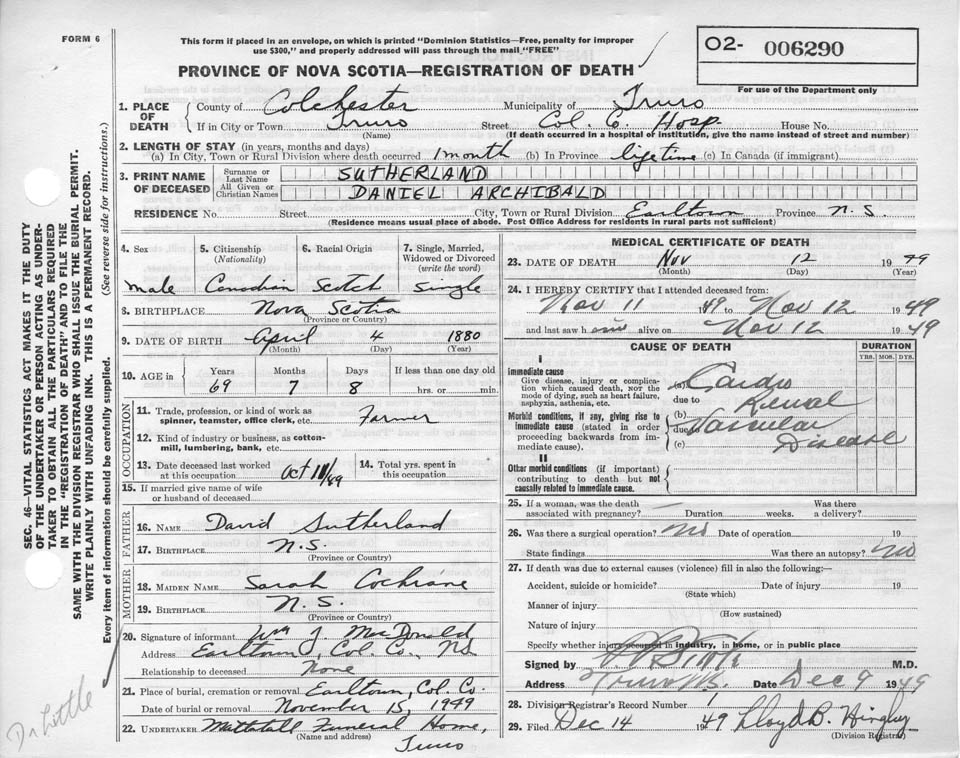 FORM 6
This form if placed in an envelope, on which is printed "Dominion Statistics—Free, penalty for improper
use $300," and properly addressed will pass through the mail "FREE"
O2- 006290
PROVINCE OF NOVA SCOTIA—REGISTRATION OF DEATH
For use of the Department only
1. PLACE OF DEATH County of Colchester Municipality of Truro
If in City or Town Truro Street Col. C. Hosp. House No.
(Name) (If death occurred in a hospital of institution, give the name instead of street and number)
2. LENGTH OF STAY (in years, months and days)
(a) In City, Town or Rural Division where death occurred 1 month (b) In Province lifetime (c) In Canada (if immigrant)
3. PRINT NAME OF DECEASED Surname or Last Name SUTHERLAND
All Given or Christian Names DANIEL ARCHIBALD
RESIDENCE No. Street City, Town or Rural Division Earltown Province N.S.
(Residence means usual place of abode. Post Office Address for residents in rural parts not sufficient)
4. Sex 5. Citizenship (Nationality) 6. Racial Origin 7. Single, Married, Widowed or Divorced (write the word)
male Canadian Scotch Single
8. BIRTHPLACE Nova Scotia
(Province or Country)
9. DATE OF BIRTH April 4 1880
(Month) (Day) (Year)
10. AGE in Years Months Days If less than one day old
69 7 8 hrs. or min.
OCCUPATION
11. Trade, profession, or kind of work as spinner, teamster, office clerk, etc. Farmer
12. Kind of industry or business, as cotton-mill, lumbering, bank, etc.
13. Date deceased last worked at this occupation Oct 11/49 14. Total yrs. spent in this occupation
15. If married give name of wife or husband of deceased
FATHER
16. NAME David Sutherland
17. BIRTHPLACE N.S.
(Province or Country)
MOTHER
18. MAIDEN NAME Sarah Cochrane
19. BIRTHPLACE N.S.
(Province or Country)
20. Signature of informant Wm J. MacDonald
Address Earltown, Col. Co., NS
Relationship to deceased None
21. Place of burial, cremation or removal Earltown, Col. Co.
Date of burial or removal November 15, 1949
22. UNDERTAKER Mattatall Funeral Home,
(Name and address) Truro
MEDICAL CERTIFICATE OF DEATH
23. DATE OF DEATH Nov 12 1949
(Month) (Day) (Year)
24. I HEREBY CERTIFY that I attended deceased from:
Nov 11 1949 to Nov 12 1949
and last saw him alive on Nov 12 1949
CAUSE OF DEATH DURATION
YRS. MOS. DYS.
I
Immediate cause
Give disease, injury or complication which caused death, nor the mode of dying, such as heart failure, asphyxia, asthenia, etc.
(a) Cardio
due to Renal
Morbid conditions, if any, giving rise to immediate cause (stated in order proceeding backwards from immediate cause).
(b)
due to Vascular
(c) Disease
II
Other morbid conditions (if important) contributing to death but not causally related to immediate cause.
25. If a woman, was the death associated with pregnancy? Duration weeks. Was there a delivery?
26. Was there a surgical operation? No Date of operation 19
State findings Was there an autopsy? No
27. If death was due to external causes (violence) fill in also the following:—
Accident, suicide or homicide? Date of injury 19
(State which)
Manner of injury
(How sustained)
Nature of injury
Specify whether injury occurred in industry, in home, or in public place
Signed by M.D.
Address Truro NS. Date Dec 9 1949
28. Division Registrar's Record Number
29. Filed Dec 14 1949 Lloyd B. Hingley
(Division Registrar)
SEC. 46—VITAL STATISTICS ACT MAKES IT THE DUTY
OF THE UNDERTAKER OR PERSON ACTING AS UNDER-
TAKER TO OBTAIN ALL THE PARTICULARS REQUIRED
IN THE "REGISTRATION OF DEATH" AND TO FILE THE
SAME WITH THE DIVISION REGISTRAR WHO SHALL ISSUE THE BURIAL PERMIT.
WRITE PLAINLY WITH UNFADING INK. THIS IS A PERMANENT RECORD.
Every item of information should be carefully supplied. (See reverse side for instructions.)
Dr Little